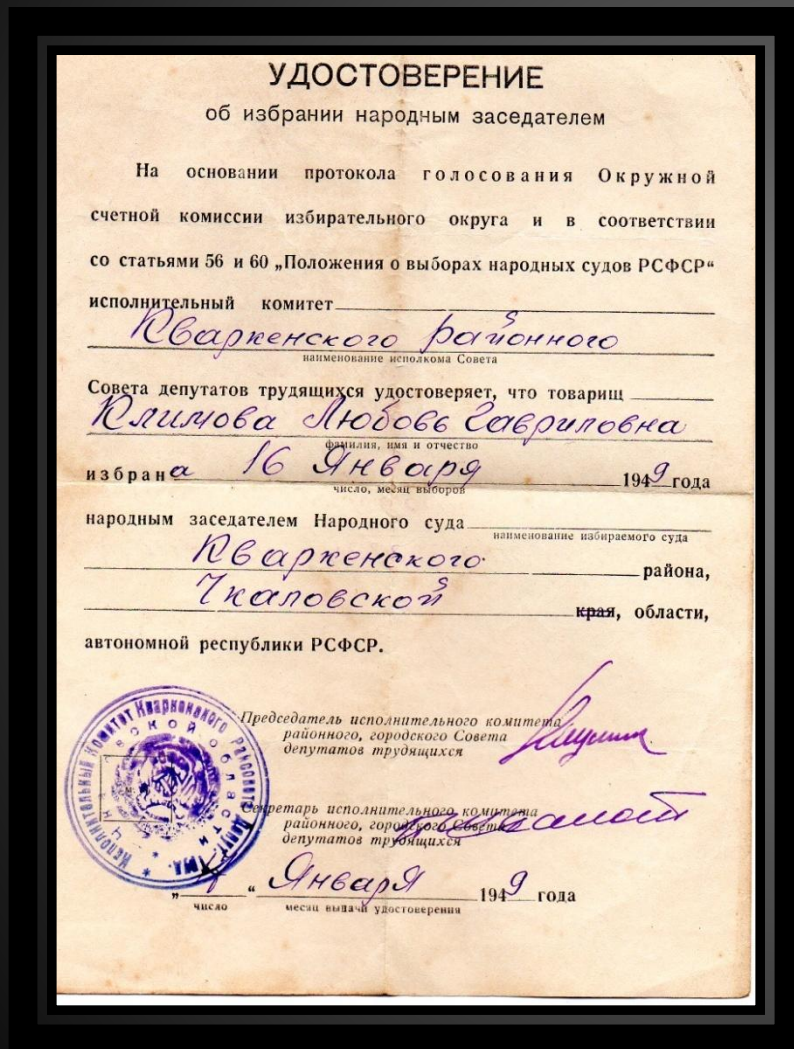 УДОСТОВЕРЕНИЕ
об избрании народным заседателем
На основании протокола голосования Окружной
счетной комиссии избирательного округа и в соответствии
со статьями 56 и 60 „Положения о выборах народных судов РСФСР“
исполнительный комитет
Кваркенского районного
наименование исполкома Совета
Совета депутатов трудящихся удостоверяет, что товарищ
Климова Любовь Гавриловна
фамилия, имя и отчество
избрана 16 Января 1949 года
число, месяц выборов
народным заседателем Народного суда
наименование избираемого суда
Кваркенского района,
Чкаловской края, области,
автономной республики РСФСР.
Председатель исполнительного комитета
районного, городского Совета
депутатов трудящихся
Секретарь исполнительного комитета
районного, городского Совета
депутатов трудящихся
Исполнительный Комитет Кваркенского Райсовета
ской области
„ “ Января 1949 года
число месяц выдачи удостоверения